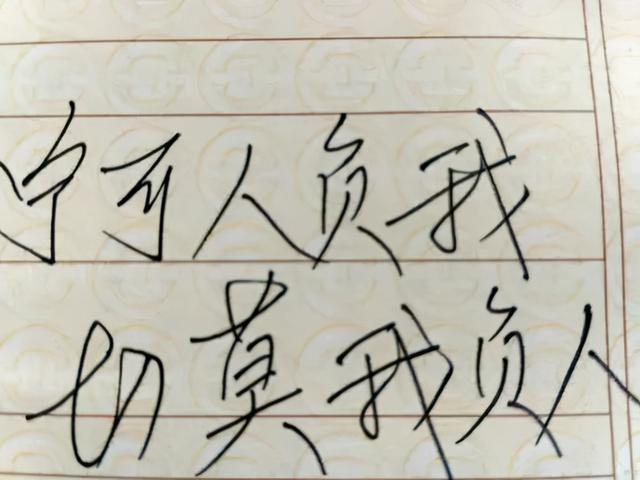 宁可人负我
切莫我负人